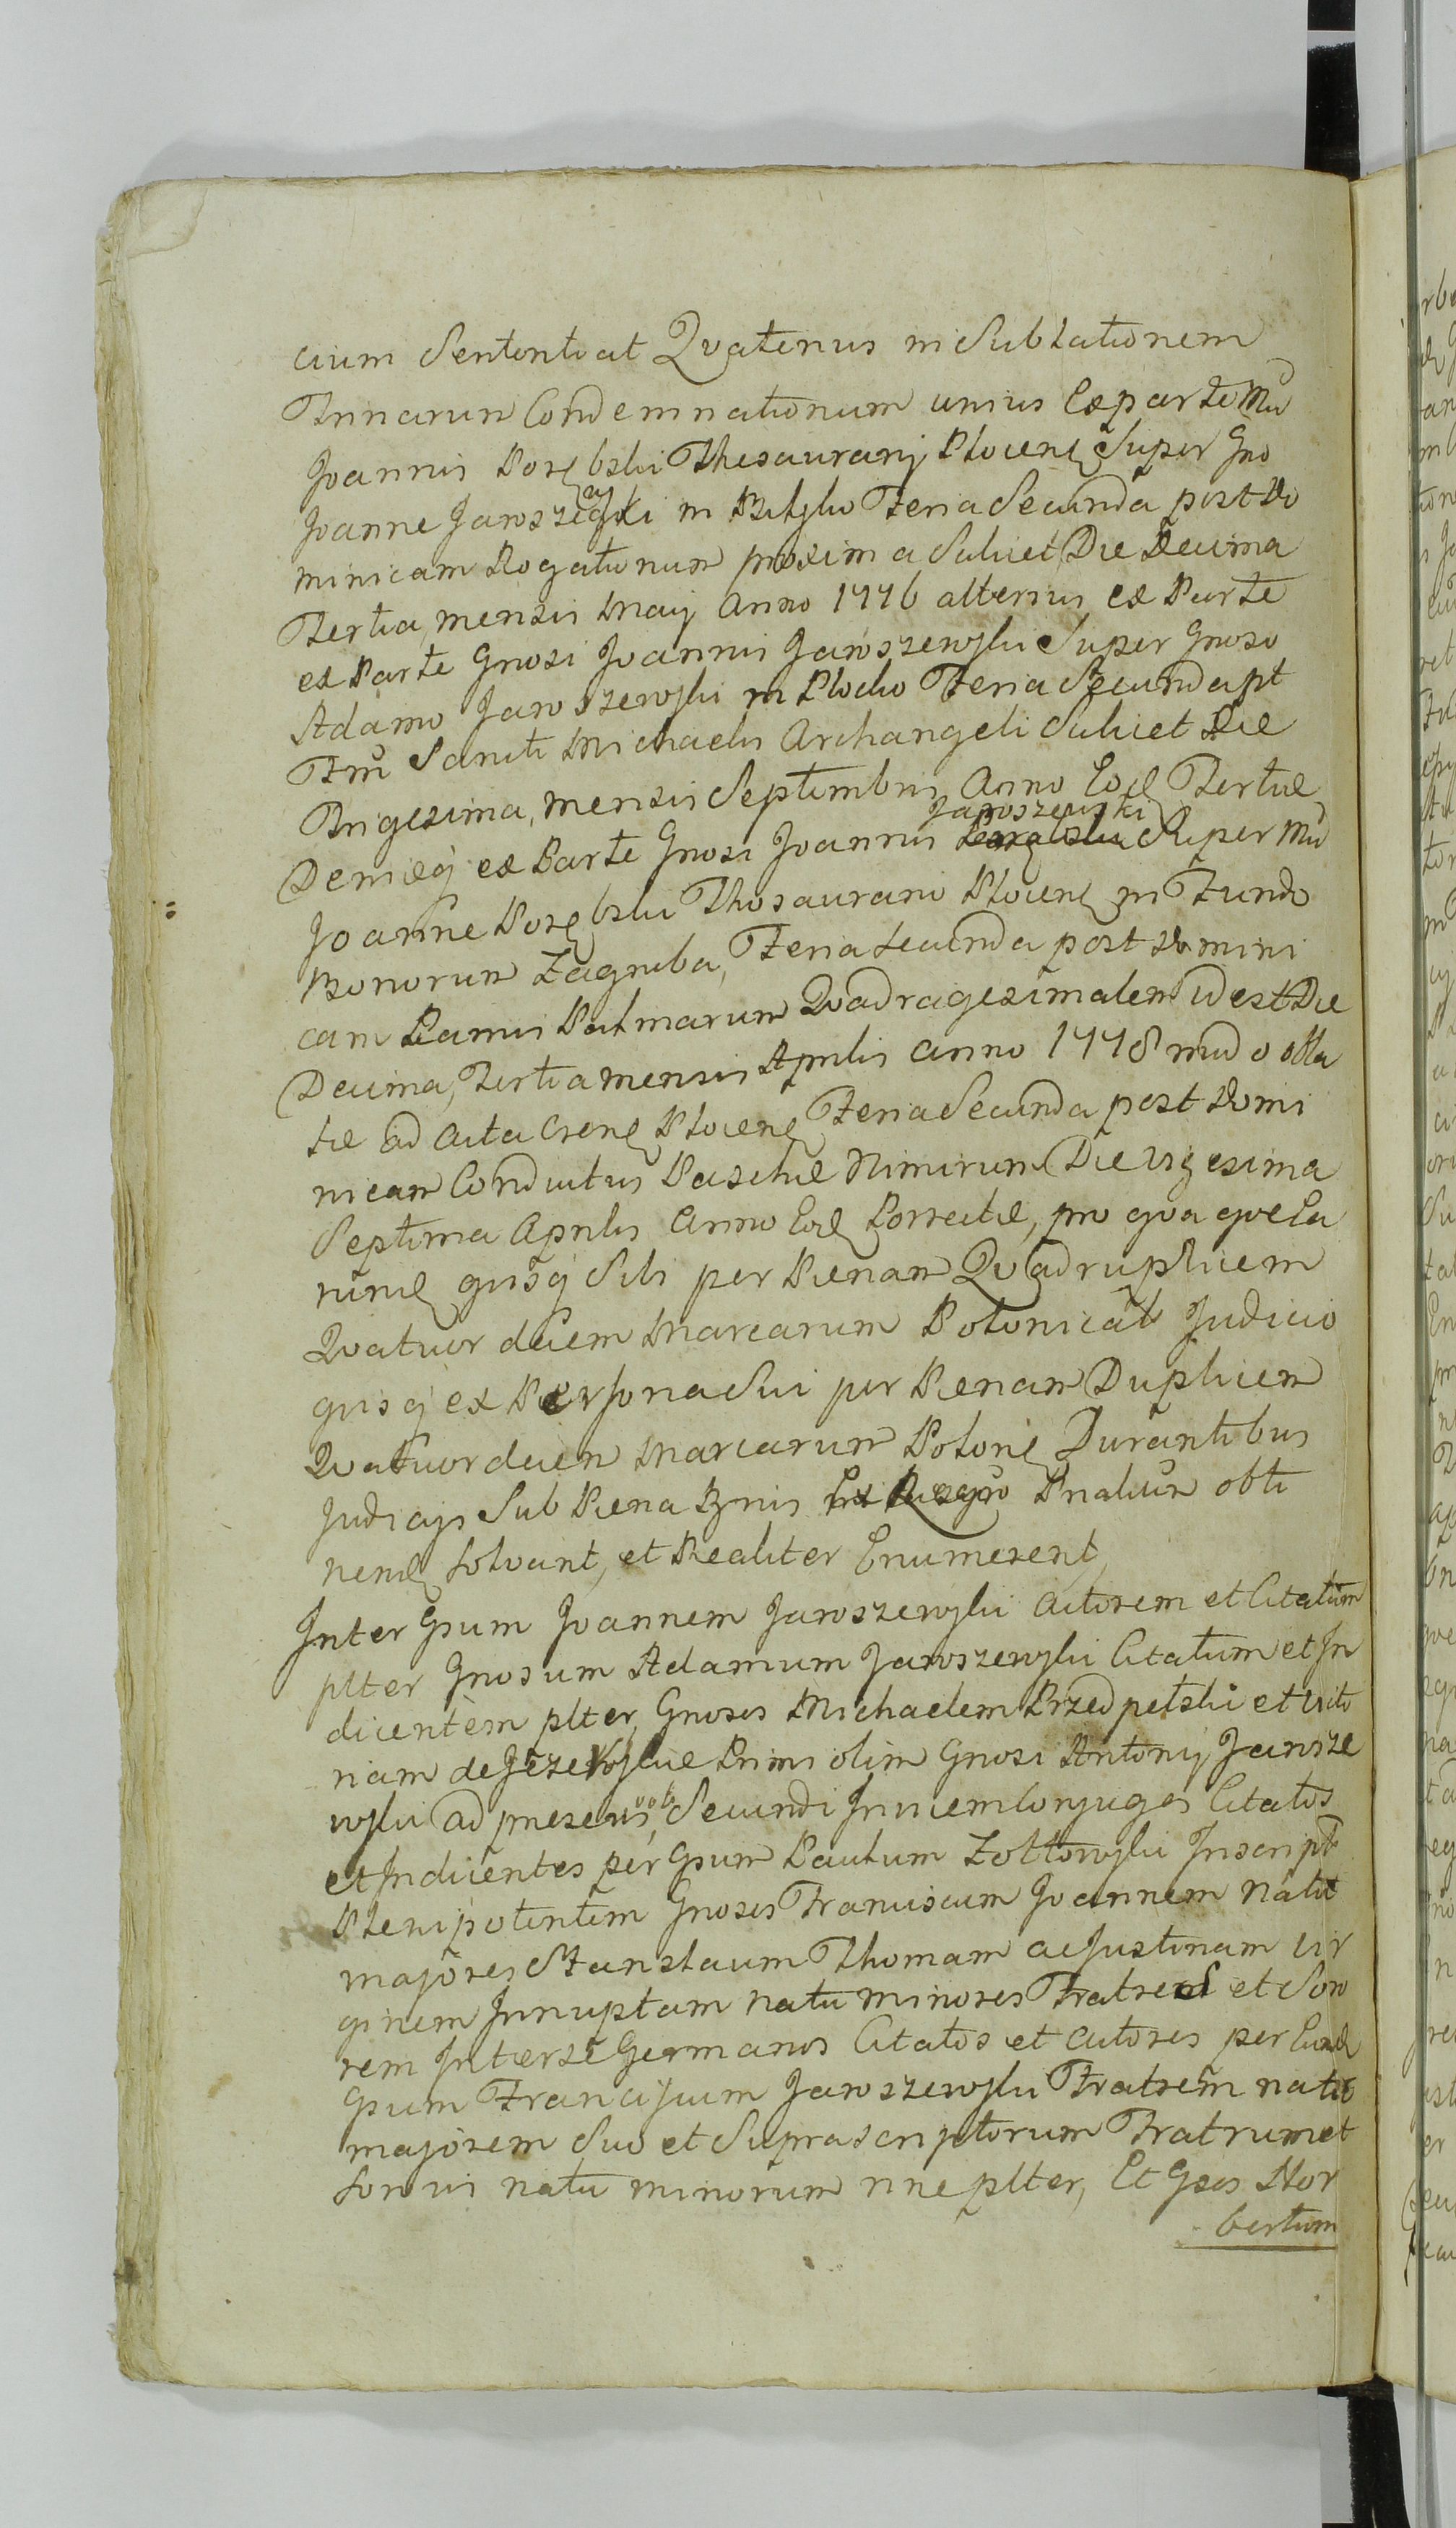 cium Sententiat Qvatenus in Sublationem
Trinarum Condemnationum unius Ex parte Mci
Joannis Porębski Thesaurarij Plocens Super Gno
Joanne Jaroszewski in Bielsko Feria Secunda post Do
minicam Rogationum proxima Scilicet Die Decima
Tertia, mensis Maij Anno 1776 alterius ex Parte
ex Parte Gnosi Joannis Jaroszewski Super Gnoso
Adamo Jaroszewski in Plocko Feria Secunda pt
Ftm Sancti Michaelis Archangeli Scilicet Die
Trigesima, mensis Septembris Anno Eod Tertiæ
Deniq ex Parte Gnosi Joannis Jaroszewski Super Mco
Joanne Porębski Thesaurario Plocens in Fundo
Bonorum Zagroba, Feria Secunda post Domini
cam Ramis Palmarum Qvadragesimalem id est Die
Decima, Tertia mensis Aprilis anno 1778 modo obla
tæ ad Acta Crens Plocens Feria Secunda post Domi
nicam Conductus Paschæ Nimirum Die Vigesima
Septima Aprilis Anno Eod Porrectæ, pro qva qvela
rum qvisq Sibi per Pænam Qvadruplicem
Qvatuor decem Marcarum Polonical Judicio
qvisq ex Persona Sui per Pænam Duplicem
Qvatuor decem Marcarum Polonic Durantibus
Judicijs Sub Pæna Bnis Ex Regno Pnalium obti
nend Solvant, et Realiter Enumerent,
Inter Gsum Joannem Jaroszewski Actorem et Citatum
plter Gnosum Adamum Jaroszewski Citatum et In
dicentem plter, Gnosos Michaelem Przedpełski et Victo
riam de Jeżewskie Primi olim Gnosi Antonij Jarosze
wski ad præsens, voti Secundi Invicem Conjuges Citatos
et Indicentes per Gsum Paulum Zołtowski Inscript
Plenipotentem Gnosos Franciscum Joannem Natu
majores Stanislaum Thomam ac Justinam Vir
ginem Innuptam natu minores Fratres et Soro
rem Inter se Germanos Citatos et Actores per Eund
Gsum Franciscum Jaroszewski Fratrem natu
majorem Suo et Suprascriptorum Fratrum et
Sororis natu minorum nne plter, Et Gsos Nor
bertum